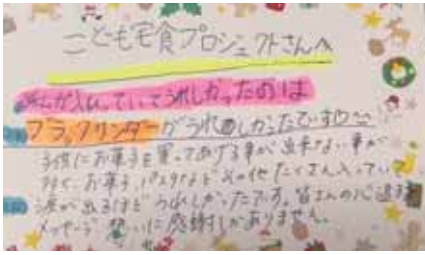 こども宅食プロジェクトさんへ
なにが入っていてうれしかったのは
ブラックサンダーがうれしかったです♡
子供にお菓子を買ってあげる事が出来ない事が
多く、お菓子、パスタなどその他たくさん入っていて
涙が出るほどうれしかったです。皆さんの心遣い
メッセージ、想いに感謝しかありません。